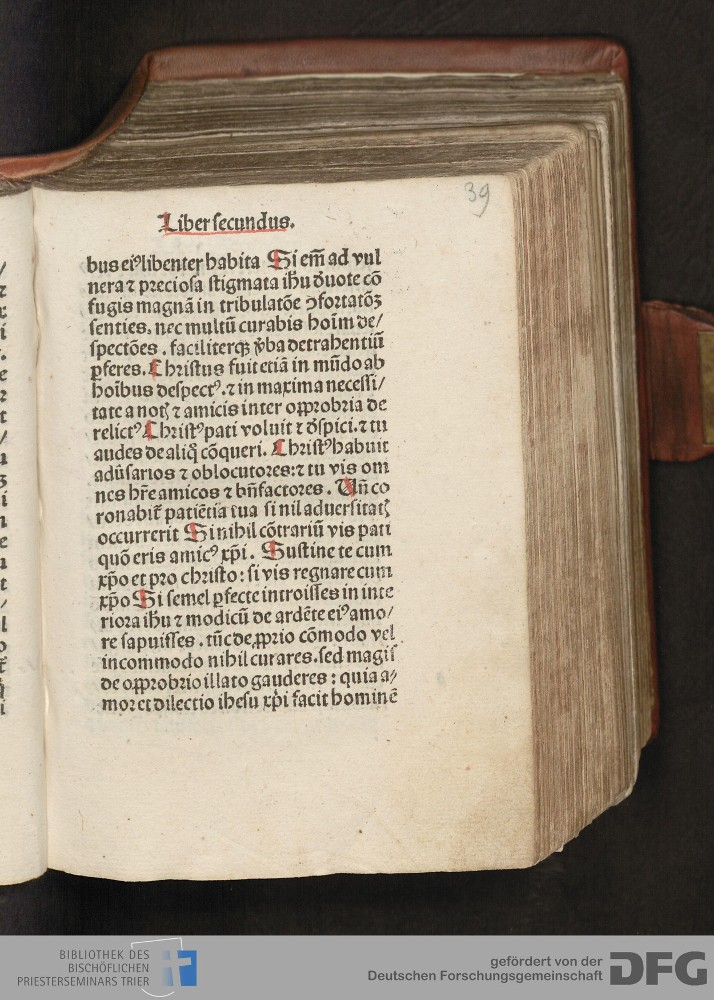 39
Liber secundus.
bus eiꝰ libenter habita Si em̄ ad vul
nera ⁊ preciosa stigmata ihu̅ deuote co̅
fugis magna̅ in tribulato̅e ↄfortato̅ꝫ
senties, nec multu̅ curabis hoi̅m de/
specto̅es. faciliterqꝫ v̓ba detrahentiu̅
ꝑferes. Christus fuit etia̅ in mu̅do ab
hoi̅bus despectꝰ. ⁊ in maxima necessi/
tate a notꝭ ⁊ amicis inter oꝓrobria de
relictꝰ Christꝰ pati voluit ⁊ d̓spici. ⁊ tu
audes de aliq̊ co̅queri. Christꝰ habuit
adu̓sarios ⁊ oblocutores: ⁊ tu vis om
nes hr̅e amicos ⁊ bn̅factores. Un̅ co
ronabit᷑ patie̅tia tua si nil aduersitatꝭ
occurrerit Si nihil co̅trariu̅ vis pati
quo̅ eris amicꝰ xp̅i. Sustine te cum
xp̅o et pro christo: si vis regnare cum
xp̅o Si semel ꝑfecte introisses in inte
riora ihu̅ ⁊ modicu̅ de arde̅te eiꝰ amo/
re sapuisses. tu̅c de ꝓprio co̅modo vel
incommodo nihil curares. sed magis
de oꝓrobrio illato gauderes: quia a/
mor et dilectio ihesu xp̅i facit homine̅
BIBLIOTHEK DES
BISCHÖFLICHEN
PRIESTERSEMINARS TRIER
gefördert von der
Deutschen Forschungsgemeinschaft
DFG